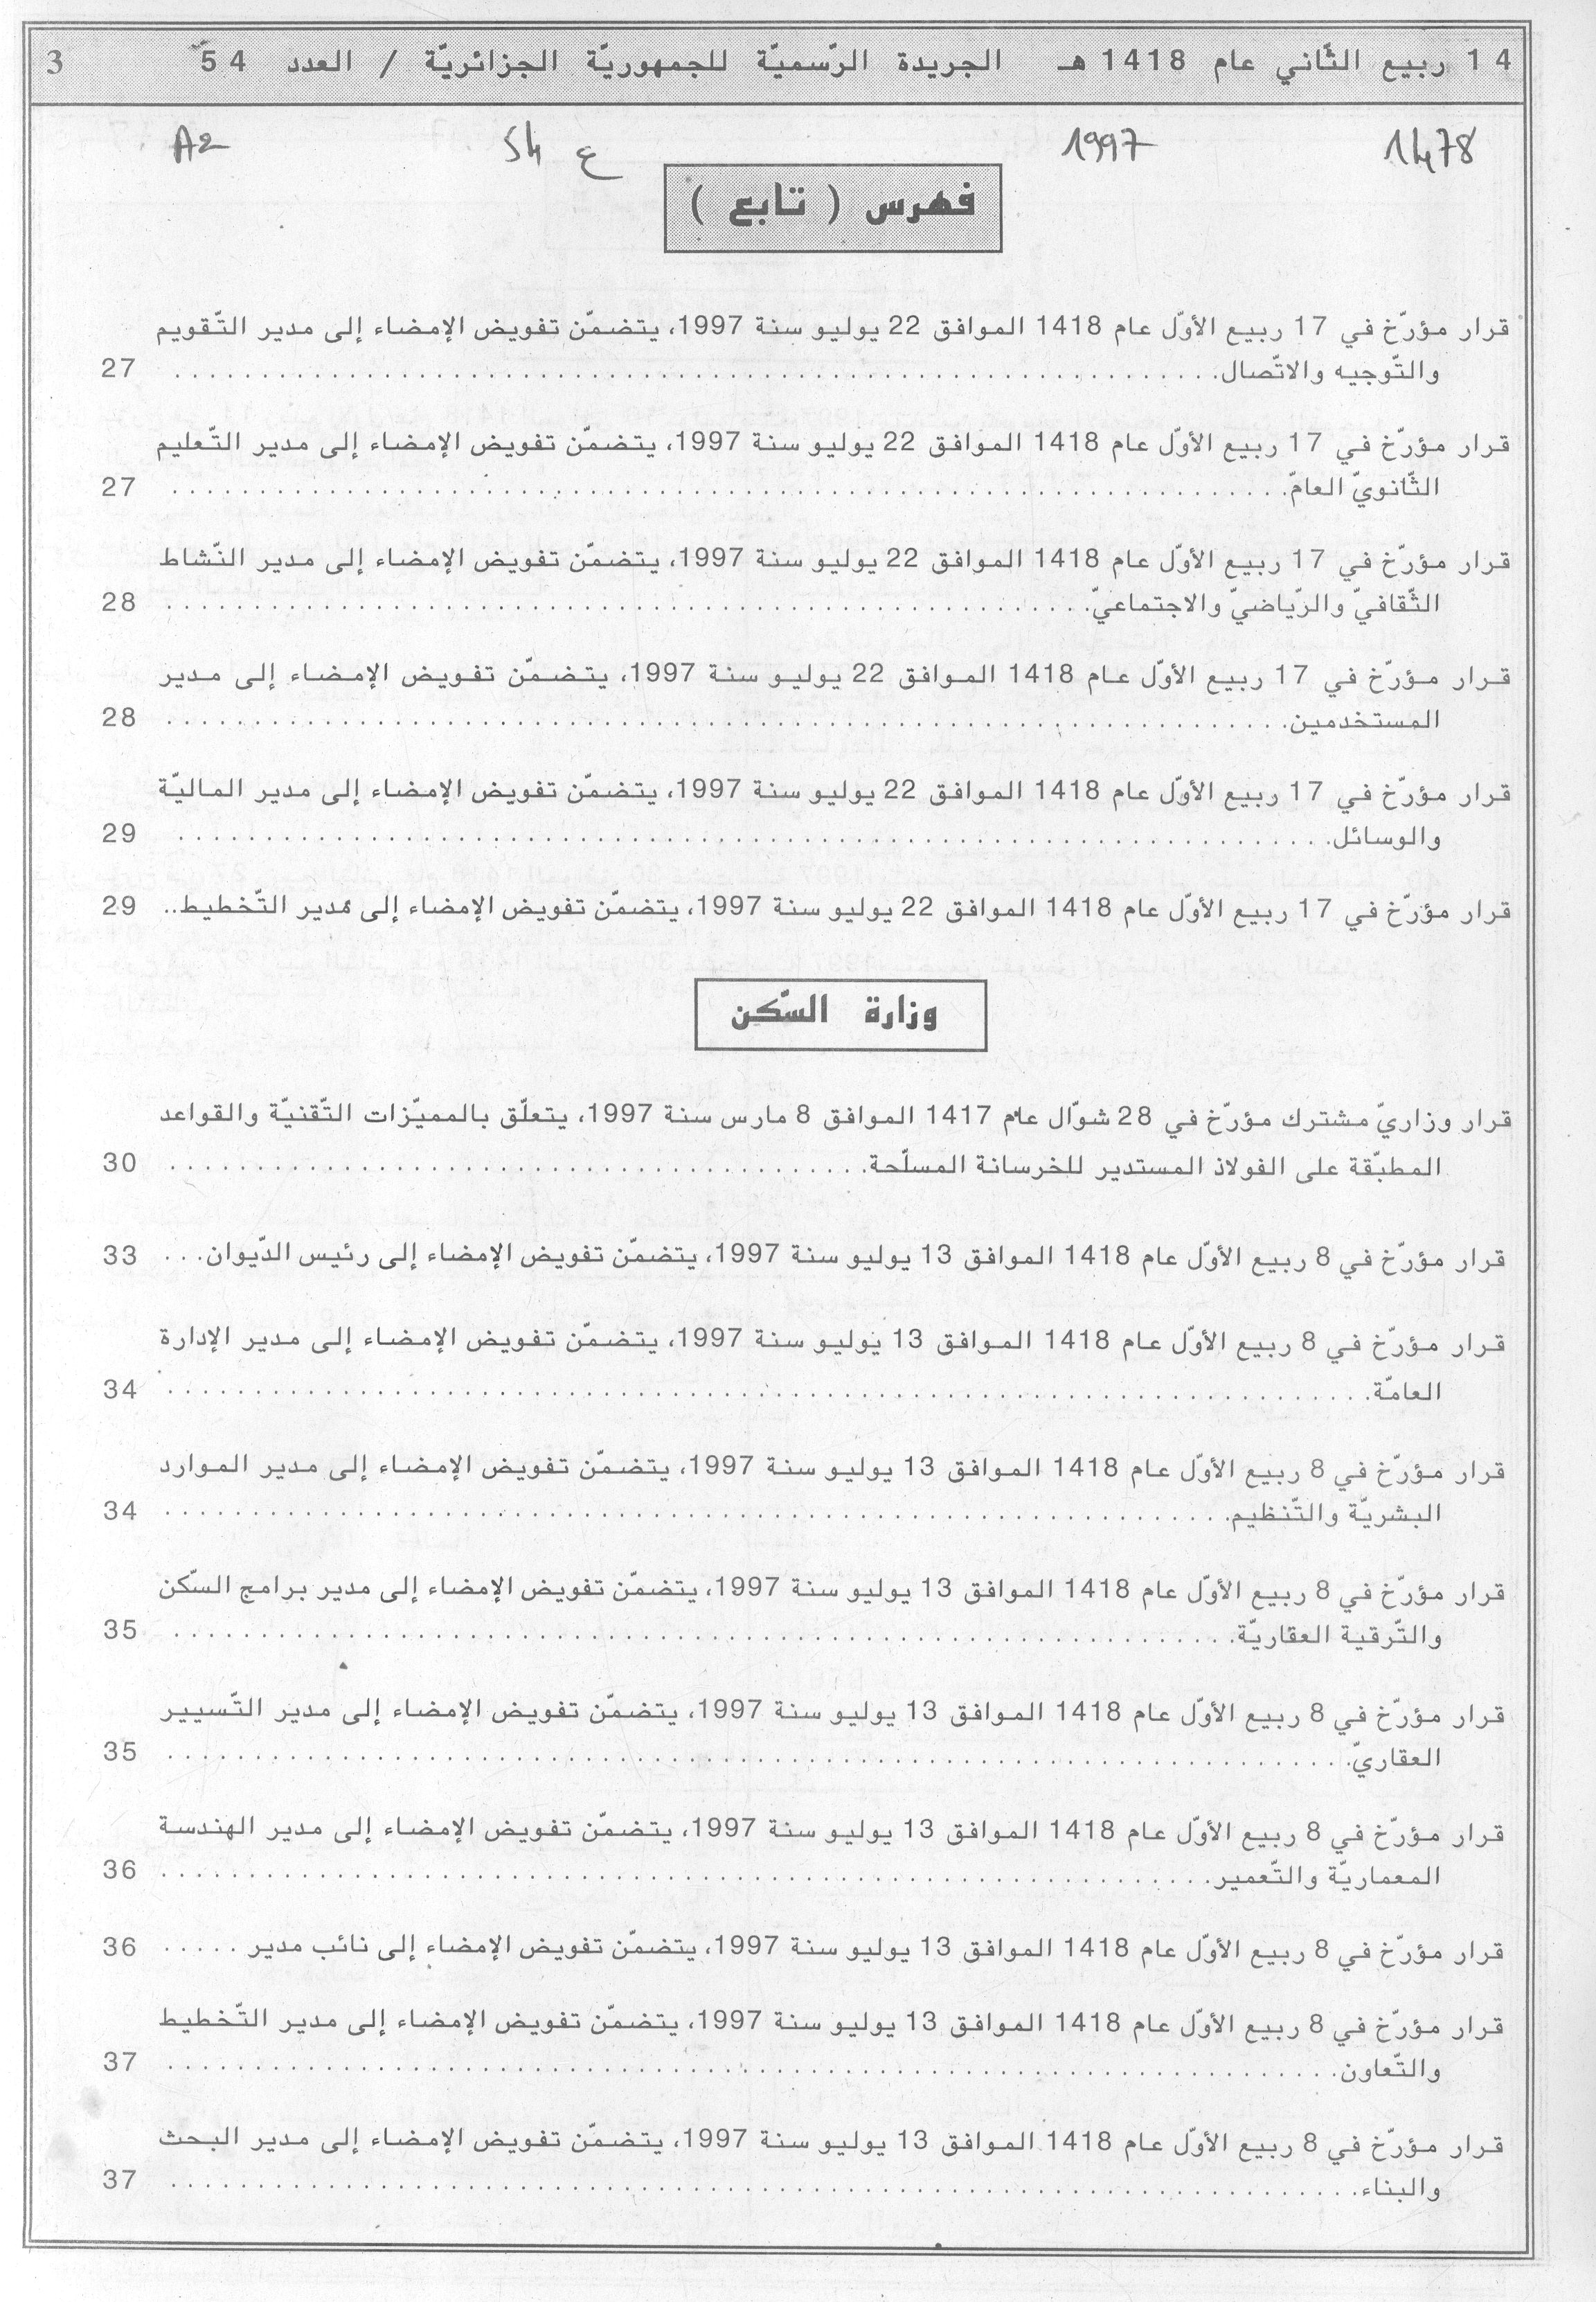 14 ربيع الثّاني عام 1418 هـ الجريدة الرّسميّة للجمهوريّة الجزائريّة / العدد 54 3
1478 1997 ع 54 A2
فهرس ( تابع )
قرار مؤرّخ في 17 ربيع الأوّل عام 1418 الموافق 22 يوليو سنة 1997، يتضمّن تفويض الإمضاء إلى مدير التّقويم
والتّوجيه والاتّصال. . . . . . . . . . 27
قرار مؤرّخ في 17 ربيع الأوّل عام 1418 الموافق 22 يوليو سنة 1997، يتضمّن تفويض الإمضاء إلى مدير التّعليم
الثّانويّ العامّ. . . . . . . . . . 27
قرار مؤرّخ في 17 ربيع الأوّل عام 1418 الموافق 22 يوليو سنة 1997، يتضمّن تفويض الإمضاء إلى مدير النّشاط
الثّقافيّ والرّياضيّ والاجتماعيّ. . . . . . . . . . 28
قرار مؤرّخ في 17 ربيع الأوّل عام 1418 الموافق 22 يوليو سنة 1997، يتضمّن تفويض الإمضاء إلى مدير
المستخدمين. . . . . . . . . . 28
قرار مؤرّخ في 17 ربيع الأوّل عام 1418 الموافق 22 يوليو سنة 1997، يتضمّن تفويض الإمضاء إلى مدير الماليّة
والوسائل. . . . . . . . . . 29
قرار مؤرّخ في 17 ربيع الأوّل عام 1418 الموافق 22 يوليو سنة 1997، يتضمّن تفويض الإمضاء إلى مدير التّخطيط.. 29
وزارة السّكن
قرار وزاريّ مشترك مؤرّخ في 28 شوّال عام 1417 الموافق 8 مارس سنة 1997، يتعلّق بالمميّزات التّقنيّة والقواعد
المطبّقة على الفولاذ المستدير للخرسانة المسلّحة. . . . . . . . . . 30
قرار مؤرّخ في 8 ربيع الأوّل عام 1418 الموافق 13 يوليو سنة 1997، يتضمّن تفويض الإمضاء إلى رئيس الدّيوان. . . 33
قرار مؤرّخ في 8 ربيع الأوّل عام 1418 الموافق 13 يوليو سنة 1997، يتضمّن تفويض الإمضاء إلى مدير الإدارة
العامّة. . . . . . . . . . 34
قرار مؤرّخ في 8 ربيع الأوّل عام 1418 الموافق 13 يوليو سنة 1997، يتضمّن تفويض الإمضاء إلى مدير الموارد
البشريّة والتّنظيم. . . . . . . . . . 34
قرار مؤرّخ في 8 ربيع الأوّل عام 1418 الموافق 13 يوليو سنة 1997، يتضمّن تفويض الإمضاء إلى مدير برامج السّكن
والتّرقية العقاريّة. . . . . . . . . . 35
قرار مؤرّخ في 8 ربيع الأوّل عام 1418 الموافق 13 يوليو سنة 1997، يتضمّن تفويض الإمضاء إلى مدير التّسيير
العقاريّ. . . . . . . . . . 35
قرار مؤرّخ في 8 ربيع الأوّل عام 1418 الموافق 13 يوليو سنة 1997، يتضمّن تفويض الإمضاء إلى مدير الهندسة
المعماريّة والتّعمير. . . . . . . . . . 36
قرار مؤرّخ في 8 ربيع الأوّل عام 1418 الموافق 13 يوليو سنة 1997، يتضمّن تفويض الإمضاء إلى نائب مدير . . . . . 36
قرار مؤرّخ في 8 ربيع الأوّل عام 1418 الموافق 13 يوليو سنة 1997، يتضمّن تفويض الإمضاء إلى مدير التّخطيط
والتّعاون. . . . . . . . . . 37
قرار مؤرّخ في 8 ربيع الأوّل عام 1418 الموافق 13 يوليو سنة 1997، يتضمّن تفويض الإمضاء إلى مدير البحث
والبناء. . . . . . . . . . 37